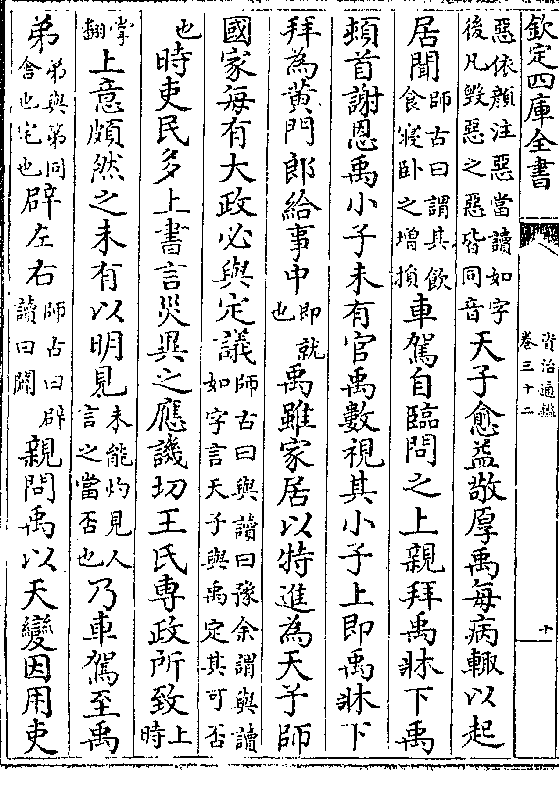 欽定四庫全書
資治通鑑
卷三十二
十
惡依顏注惡當讀如字
後凡毀惡之惡皆同音
天子愈益敬厚禹每病輒以起
居聞
師古曰謂其飲
食寢卧之增損
車駕自臨問之上親拜禹牀下禹
頓首謝恩禹小子未有官禹數視其小子上即禹牀下
拜為黄門郎給事中
即就
也
禹雖家居以特進為天子師
國家每有大政必與定議
師古曰與讀曰豫余謂與讀
如字言天子與禹定其可否
也
時吏民多上書言災異之應譏切王氏專政所致
上
時
掌
翻
上意頗然之未有以明見
未能灼見人
言之當否也
乃車駕至禹
弟
弟與第同
舍也宅也
辟左右
師古曰辟
讀曰闢
親問禹以天變因用吏